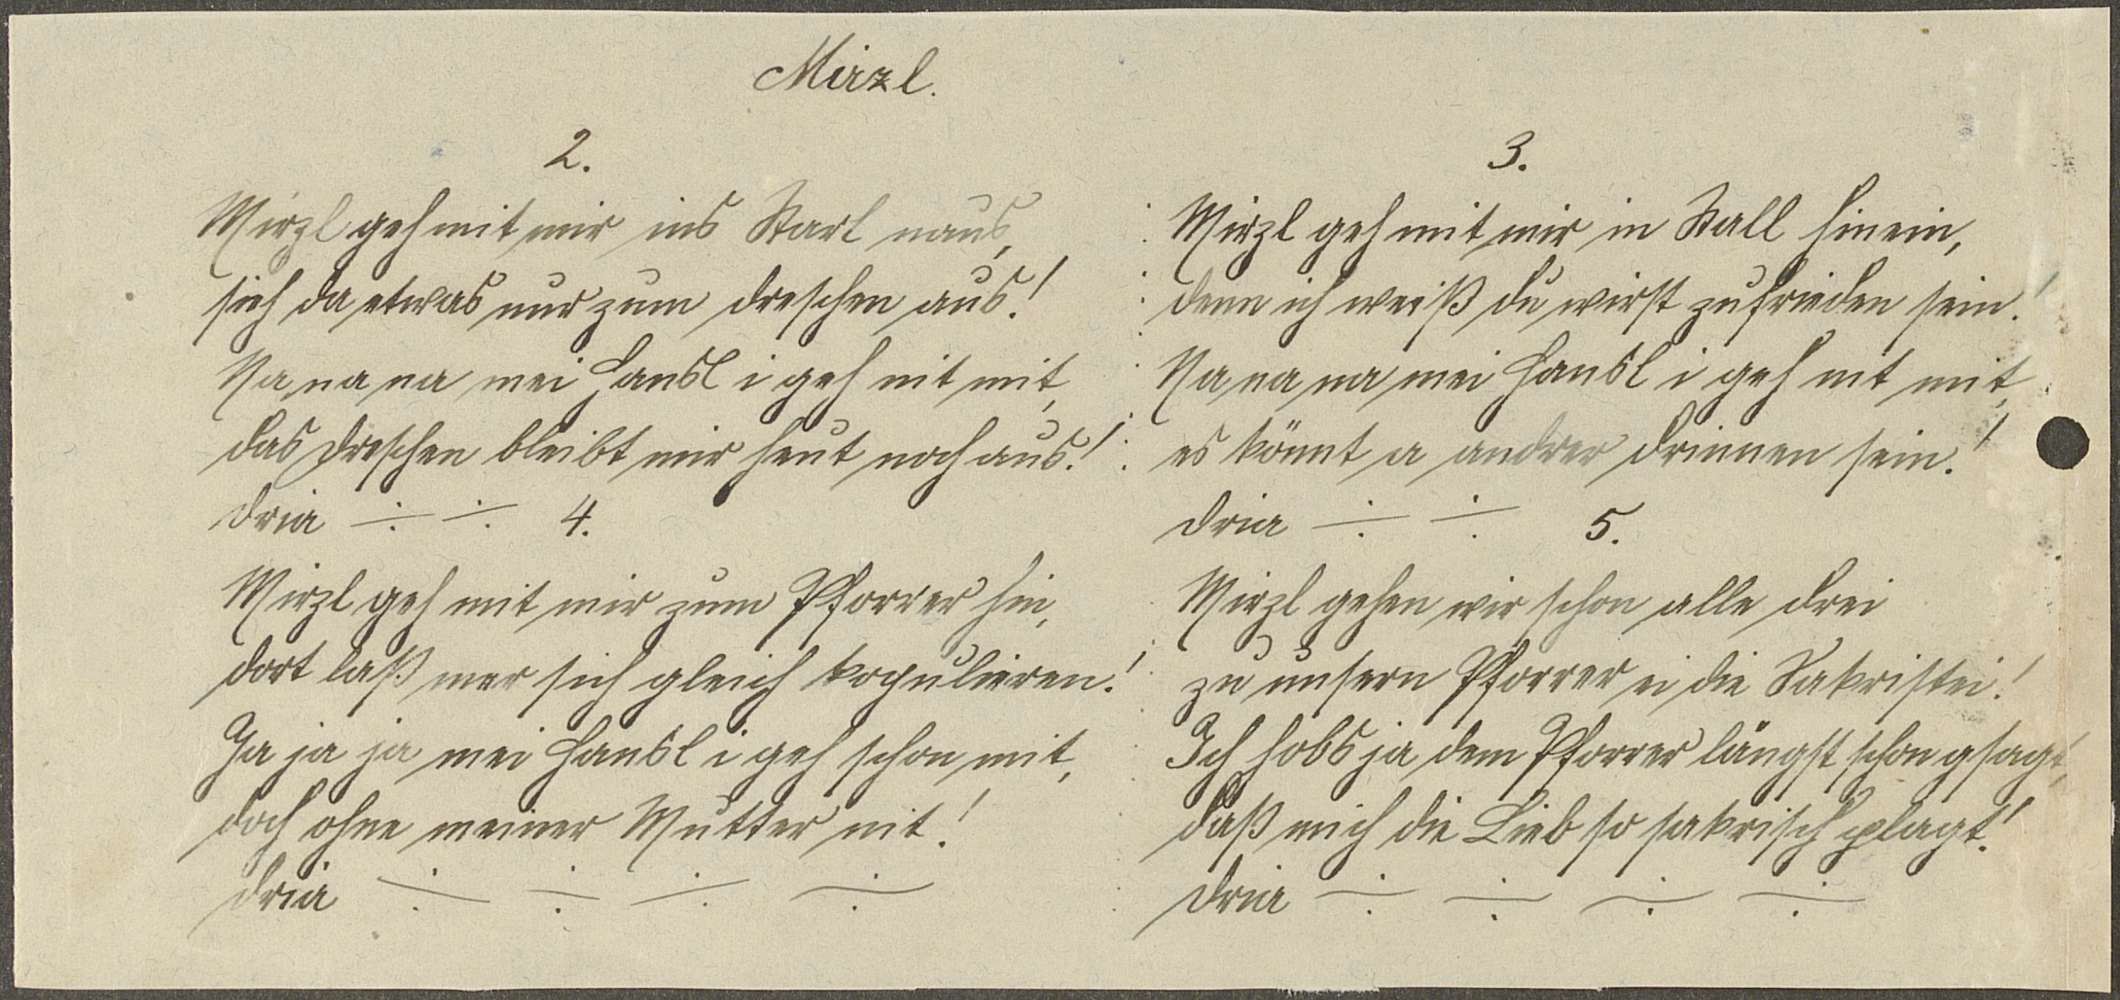 Mirzl.
2.
Mirzl geh mit mir ins Starl naus,
sieh da etwas nur zum dreschen aus!
Na, na na mei Hansl i geh nit mit,
das dreschen bleibt mir heut noch aus!
dria ÷ ÷
4.
Mirzl geh mit mir zum Pforrer hin,
dort laß mer sich gleich kopulieren!
Ja ja ja mei Hansl i geh schon mit,
doch ohne meiner Mutter nit!
dria ÷ ÷ ÷ ÷
3.
Mirzl geh mit mir in Stall hinein,
denn ich weiß du wirst zufrieden sein!
Na na na mei Hansl i geh nit mit,
es könnt a andrer drinnen sein!
dria ÷ ÷
5.
Mirzl gehen wir schon alle drei
zu unsern Pforrer ei die Sakristei!
Ich hobs ja dem Pforrer längst schon gsagt,
daß mich die Lieb so sakrisch plagt!
dria ÷ ÷ ÷ ÷